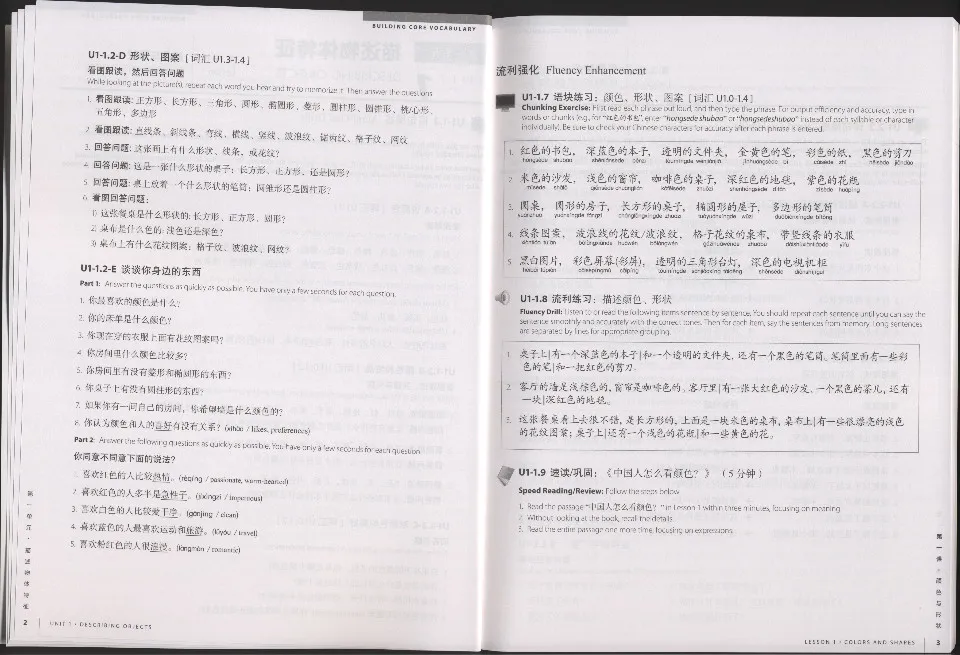 BUILDING CORE VOCABULARY
U1-1.2-D 形状、图案 [词汇 U1.3-1.4]
看图跟读，然后回答问题
While looking at the picture(s), repeat each word you hear and try to memorize it. Then answer the questions.
1. 看图跟读: 正方形、长方形、三角形、圆形、椭圆形、菱形、圆柱形、圆锥形、桃/心形、
五角形、多边形
2. 看图跟读: 直线条、斜线条、弯线、横线、竖线、波浪纹、锯齿纹、格子纹、网纹
3. 回答问题: 这张画上有什么形状、线条，或花纹?
4. 回答问题: 这是一张什么形状的桌子: 长方形、正方形、还是圆形?
5. 回答问题: 桌上放着一个什么形状的笔筒: 圆锥形还是圆柱形?
6. 看图回答问题:
1) 这张餐桌是什么形状的: 长方形、正方形、圆形?
2) 桌布是什么色的: 浅色还是深色?
3) 桌布上有什么花纹图案: 格子纹、波浪纹、网纹?
U1-1.2-E 谈谈你身边的东西
Part 1: Answer the questions as quickly as possible. You have only a few seconds for each question.
1. 你最喜欢的颜色是什么?
2. 你的床单是什么颜色?
3. 你现在穿的衣服上面有花纹图案吗?
4. 你房间里什么颜色比较多?
5. 你房间里有没有菱形和椭圆形的东西?
6. 你桌子上有没有圆柱形的东西?
7. 如果你有一间自己的房间，你希望墙是什么颜色的?
8. 你认为颜色和人的喜好有没有关系? (xǐhào / likes, preferences)
Part 2: Answer the following questions as quickly as possible. You have only a few seconds for each question.
你同意不同意下面的说法?
1. 喜欢红色的人比较热情。(rèqíng / passionate, warm-hearted)
2. 喜欢红色的人多半是急性子。(jíxìngzi / impetuous)
3. 喜欢白色的人比较爱干净。(gānjìng / clean)
4. 喜欢蓝色的人最喜欢运动和旅游。(lǚyóu / travel)
5. 喜欢粉红色的人很浪漫。(làngmàn / romantic)
第一单元・描述物体特征
2 | UNIT 1 • DESCRIBING OBJECTS
流利强化 Fluency Enhancement
U1-1.7 语块练习: 颜色、形状、图案 [词汇 U1.0-1.4]
Chunking Exercise: First read each phrase out loud, and then type the phrase. For output efficiency and accuracy, type in
words or chunks (e.g., for "红色的书包", enter "hongsede shubao" or "hongsedeshubao" instead of each syllable or character
individually). Be sure to check your Chinese characters for accuracy after each phrase is entered.
1. 红色的书包， 深蓝色的本子， 透明的文件夹， 金黄色的笔， 彩色的纸， 黑色的剪刀
hóngsède shūbāo shēnlánsède běnzi tòumíngde wénjiànjiā jīnhuángsède bǐ cǎisède zhǐ hēisède jiǎndāo
2. 米色的沙发， 浅色的窗帘， 咖啡色的桌子， 深红色的地毯， 紫色的花瓶
mǐsède shāfā qiǎnsède chuānglián kāfēisède zhuōzi shēnhóngsède dìtǎn zǐsède huāpíng
3. 圆桌， 圆形的房子， 长方形的桌子， 椭圆形的屋子， 多边形的笔筒
yuánzhuō yuánxíngde fángzi chángfāngxíngde zhuōzi tuǒyuánxíngde wūzi duōbiānxíngde bǐtǒng
4. 线条图案， 波浪线的花纹/波浪纹， 格子花纹的桌布， 带竖线条的衣服
xiàntiáo tú'àn bōlàngxiànde huāwén bōlàngwén gézihuāwénde zhuōbù dàishùxiàntiáode yīfu
5. 黑白图片， 彩色屏幕(彩屏)， 透明的三角形台灯， 深色的电视机柜
hēibái túpiàn cǎisèpíngmù cǎipíng tòumíngde sānjiǎoxíng táidēng shēnsède diànshìjīguì
U1-1.8 流利练习: 描述颜色、形状
Fluency Drill: Listen to or read the following items sentence by sentence. You should repeat each sentence until you can say the
sentence smoothly and accurately with the correct tones. Then for each item, say the sentences from memory. Long sentences
are separated by lines for appropriate grouping.
1. 桌子上|有一个深蓝色的本子|和一个透明的文件夹，还有一个黑色的笔筒。笔筒里面有一些彩
色的笔|和一把红色的剪刀。
2. 客厅的墙是浅棕色的，窗帘是咖啡色的。客厅里|有一张大红色的沙发、一个黑色的茶几，还有
一块|深红色的地毯。
3. 这张餐桌看上去很不错，是长方形的，上面是一块米色的桌布，桌布上|有一些很漂亮的浅色
的花纹图案；桌子上|还有一个浅色的花瓶|和一些黄色的花。
U1-1.9 速读/巩固: 《中国人怎么看颜色? 》 (5 分钟)
Speed Reading/Review: Follow the steps below.
1. Read the passage "中国人怎么看颜色?" in Lesson 1 within three minutes, focusing on meaning.
2. Without looking at the book, recall the details.
3. Read the entire passage one more time, focusing on expressions.
第一课・颜色与形状
LESSON 1 • COLORS AND SHAPES | 3